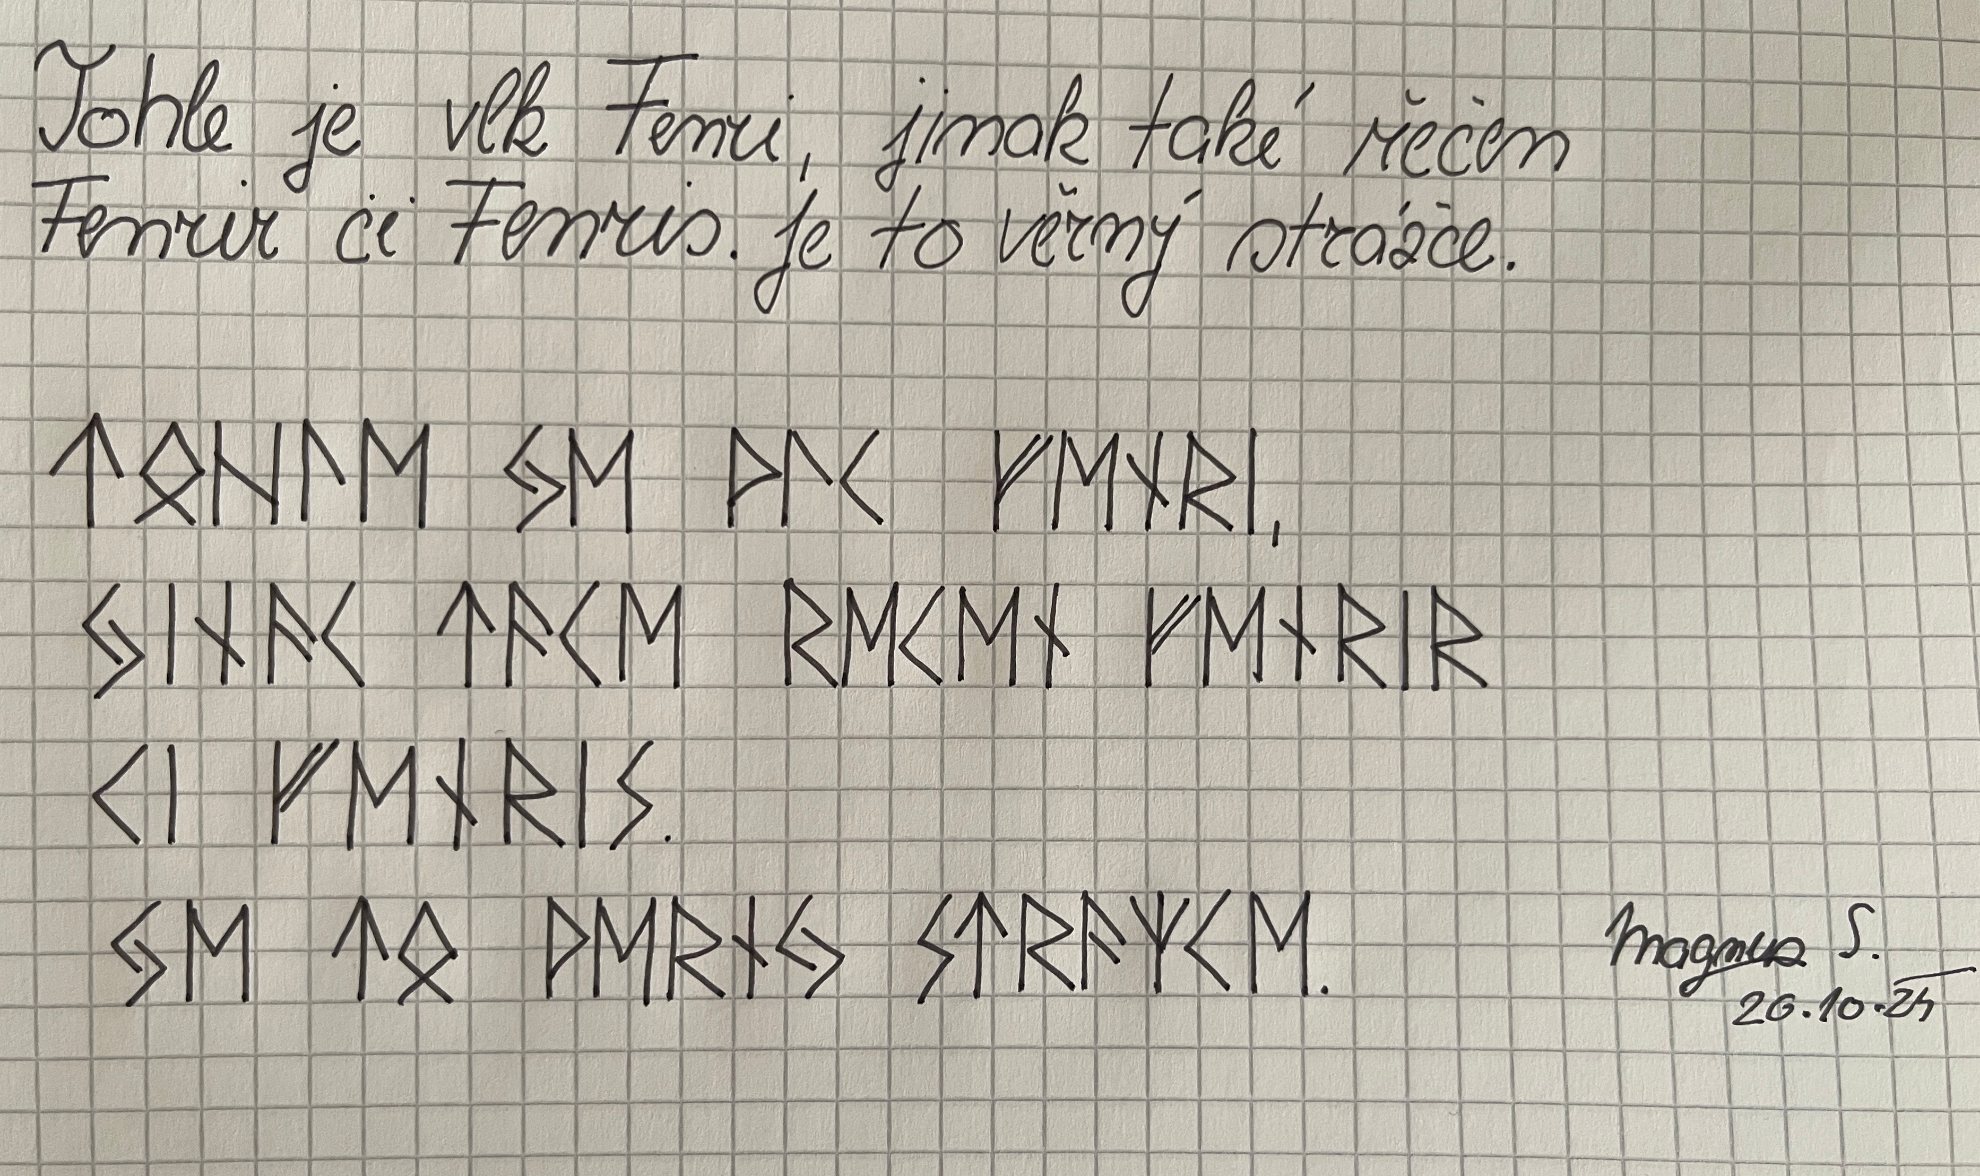 Tohle je vlk Fenri, jinak také řečen
Fenrir či Fenris. Je to věrný strážce.
ᛏᛟᚺᛚᛖ ᛃᛖ ᚹᛚᚲ ᚠᛖᚾᚱᛁ,
ᛃᛁᚾᚨᚲ ᛏᚨᚲᛖ ᚱᛖᚲᛖᚾ ᚠᛖᚾᚱᛁᚱ
ᚲᛁ ᚠᛖᚾᚱᛁᛊ.
ᛃᛖ ᛏᛟ ᚹᛖᚱᚾᛃ ᛊᛏᚱᚨᛉᚲᛖ.
Magnus S.
26.10.25